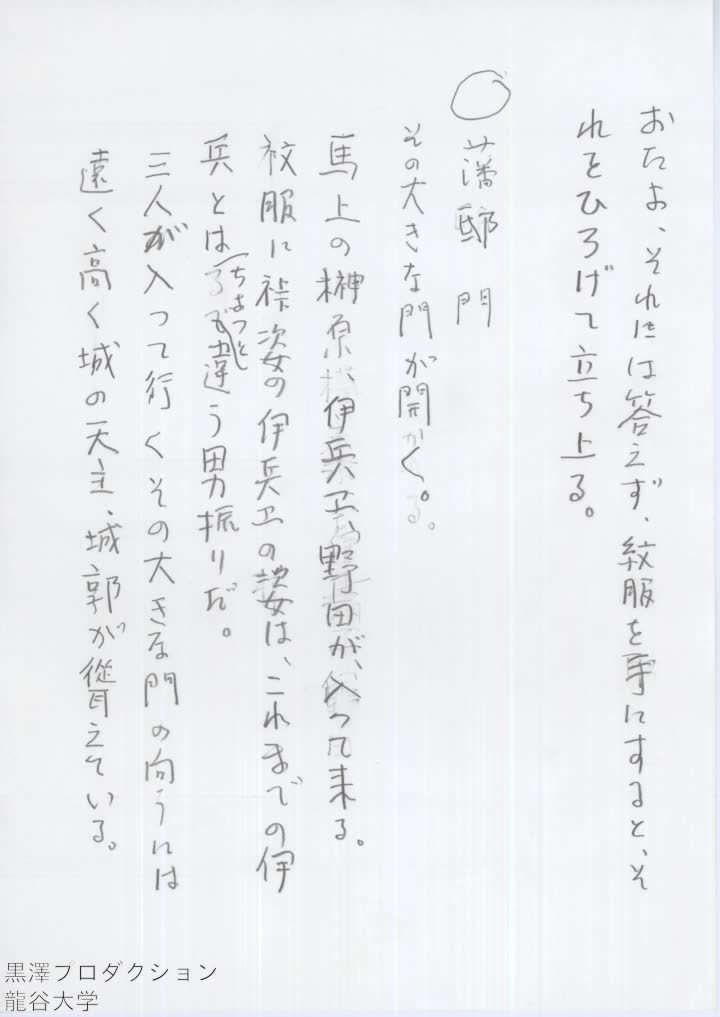 おたよ、それには答えず、紋服を手にすると、そ
れをひろげて立ち上る。
○藩邸門
その大きな門が開く。
馬上の榊原、伊兵衛、野田が、入って来る。
紋服に裃姿の伊兵衛の姿は、これまでの伊
兵とはちょっと違う男振りだ。
三人が入って行くその大きな門の向うには
遠く高く城の天主、城郭が聳えている。
黒澤プロダクション
龍谷大学